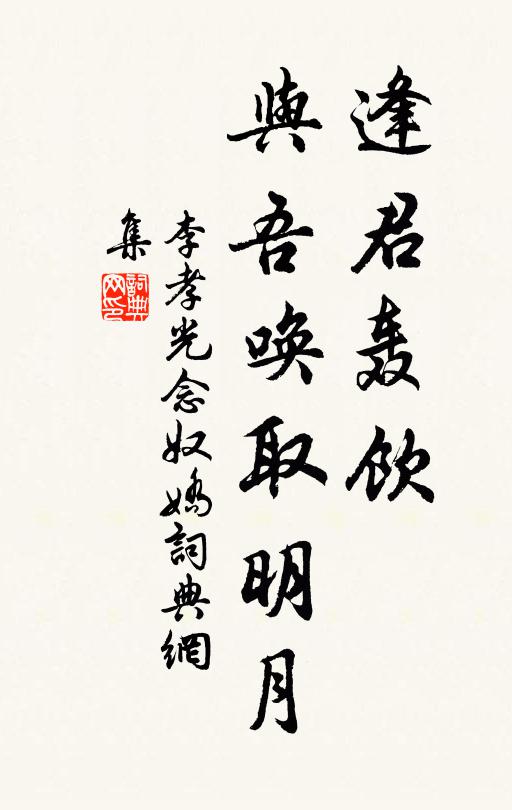 逢君轰饮
與吾唤取明月
李孝光念奴嬌詞典網
集
詞典
网印